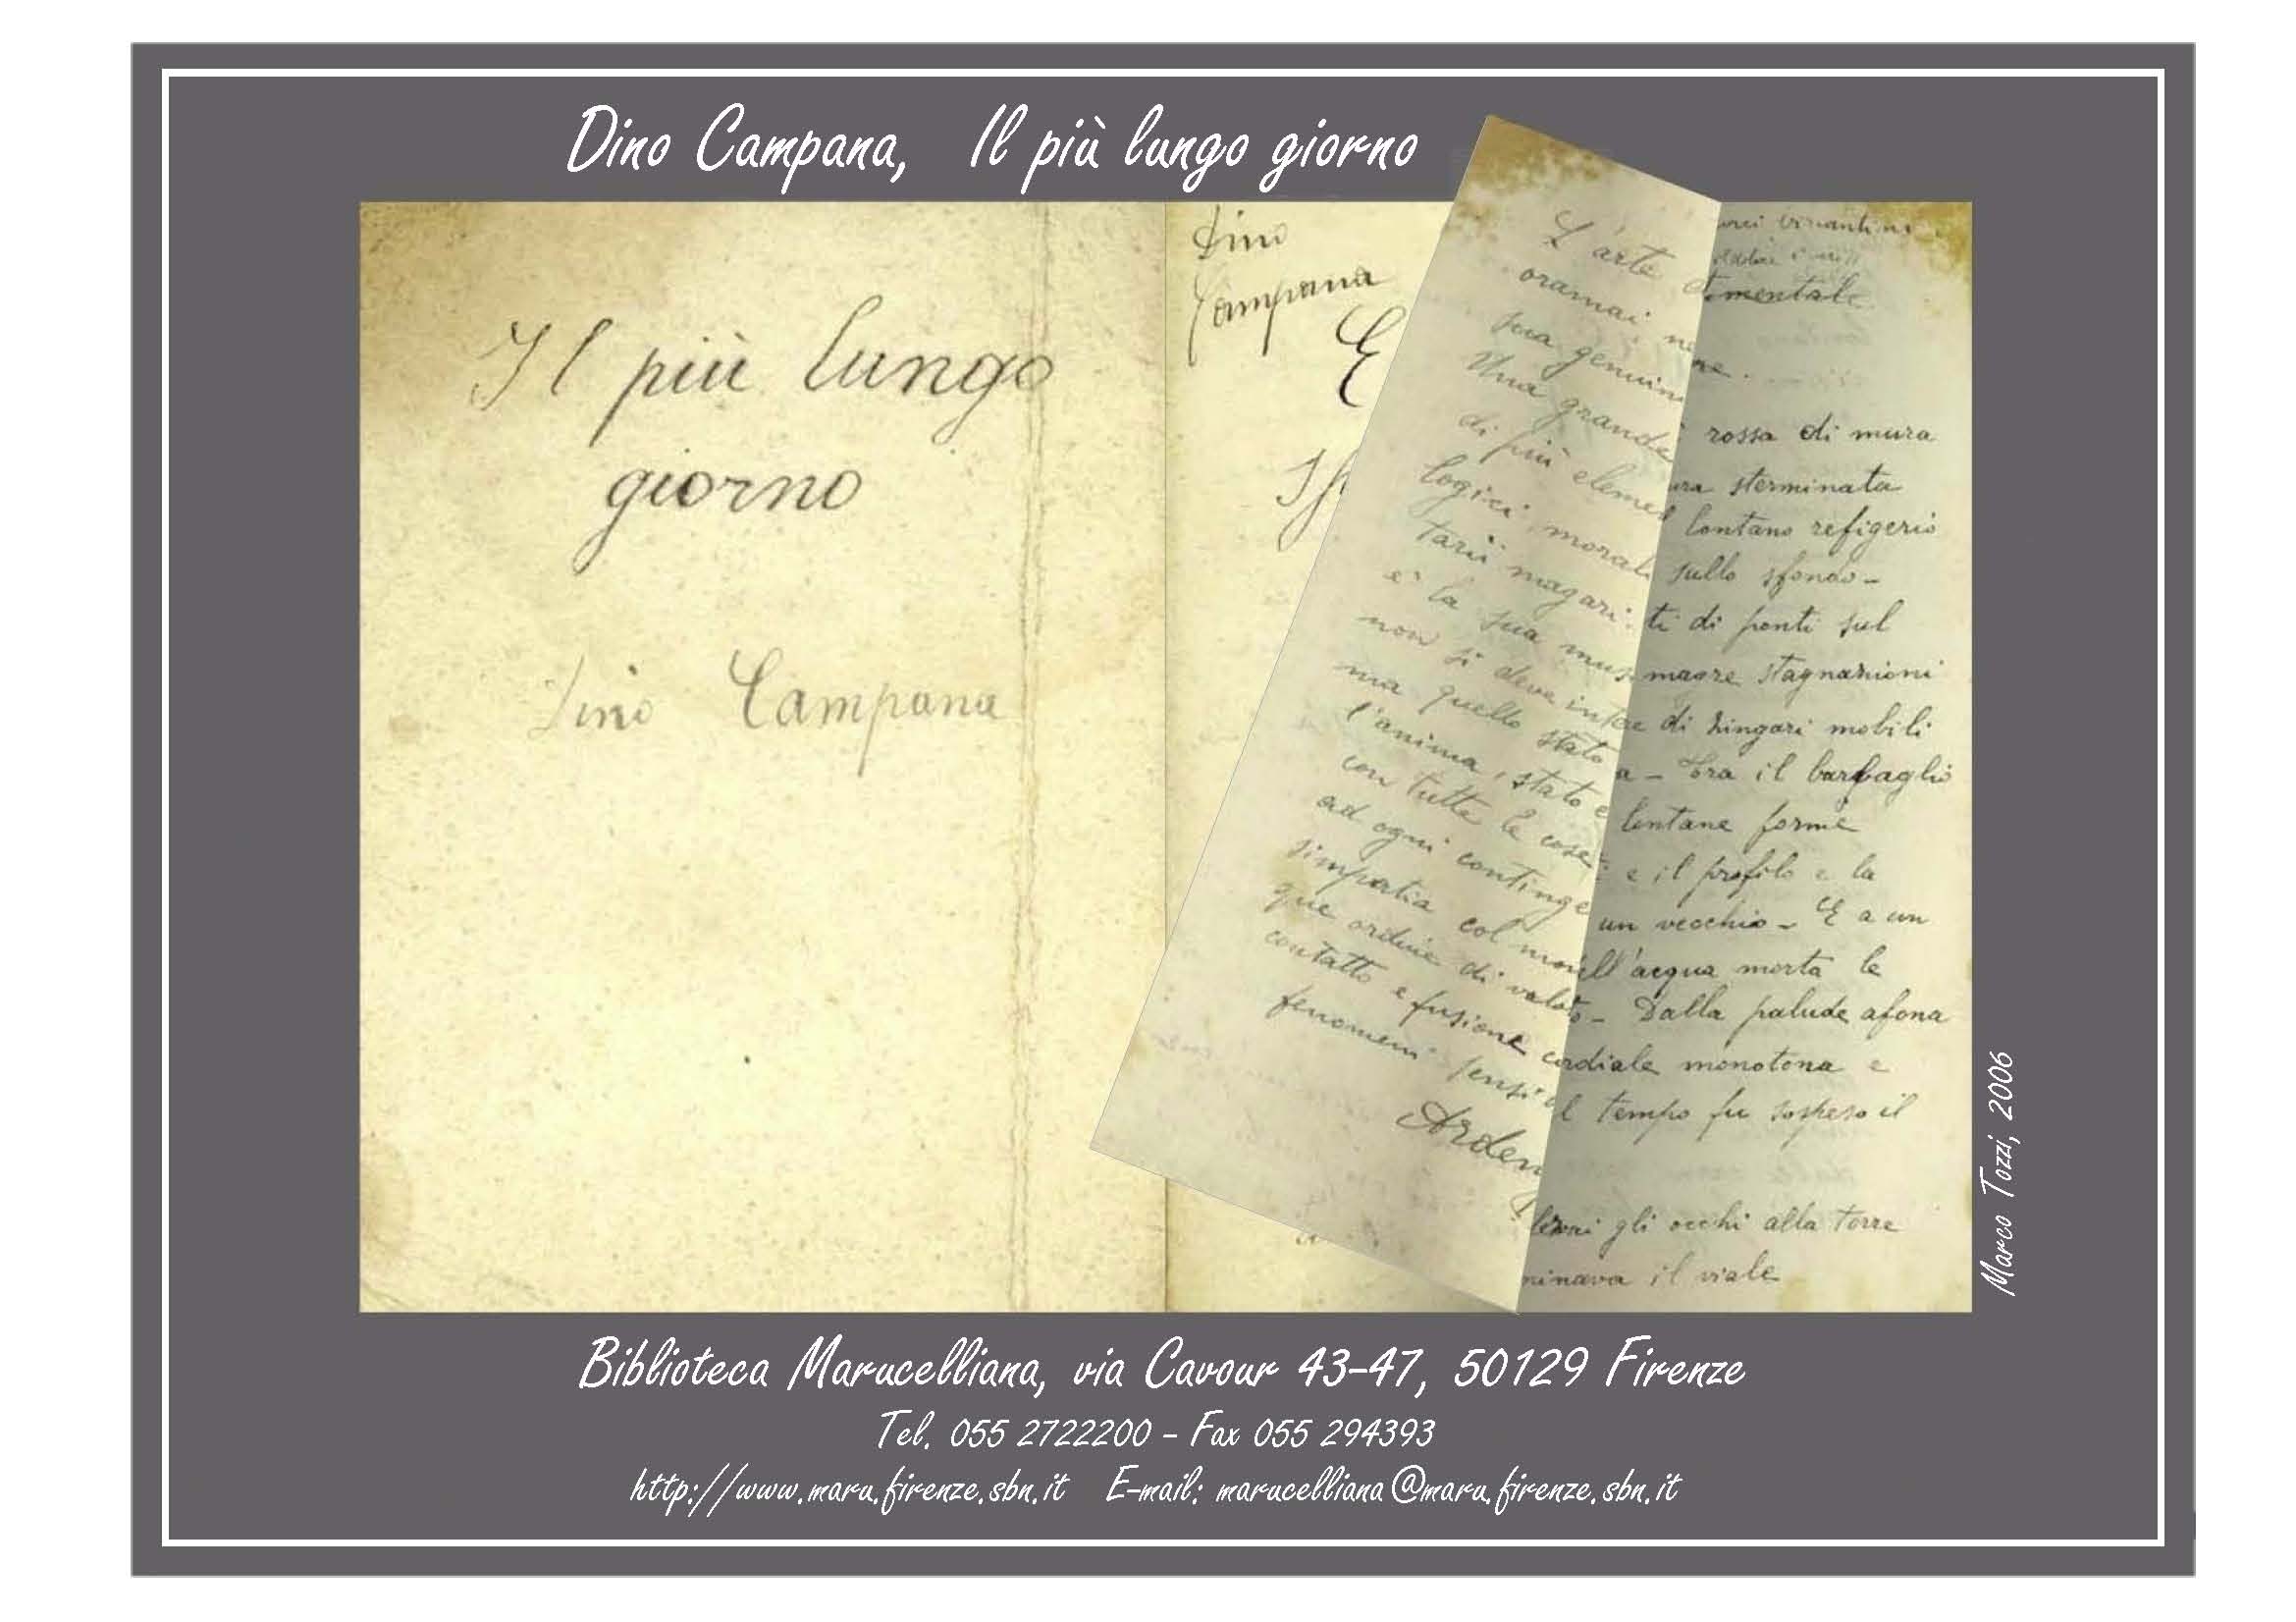 Dino Campana, Il più lungo giorno
Il più lungo
giorno
Dino Campana
Dino
Campana
E
L'arte
oramai
sua genuin
Una grande
di più elemen
logici, morali
tarii magari:
e' la sua mus
non si deve inte
ma quello stato
l'anima, stato
con tutte le cose
ad ogni continge
simpatia col mon
que ordine di valo
contatto e fusione
fenomeni sensi
Arden
timentale
ne.
rossa di mura
ura sterminata
lontano refigerio
sullo sfondo-
ti di ponti sul
magre stagnazioni
re di zingari mobili
a - Ora il barbaglio
lontane forme
e il profilo e la
un vecchio - E a un
ell'acqua morta le
- Dalla palude afona
cordiale monotona e
il tempo fu sospeso il
levai gli occhi alla torre
minava il viale
Marco Tozzi, 2006
Biblioteca Marucelliana, via Cavour 43-47, 50129 Firenze
Tel. 055 2722200 - Fax 055 294393
http://www.maru.firenze.sbn.it E-mail: marucelliana@maru.firenze.sbn.it